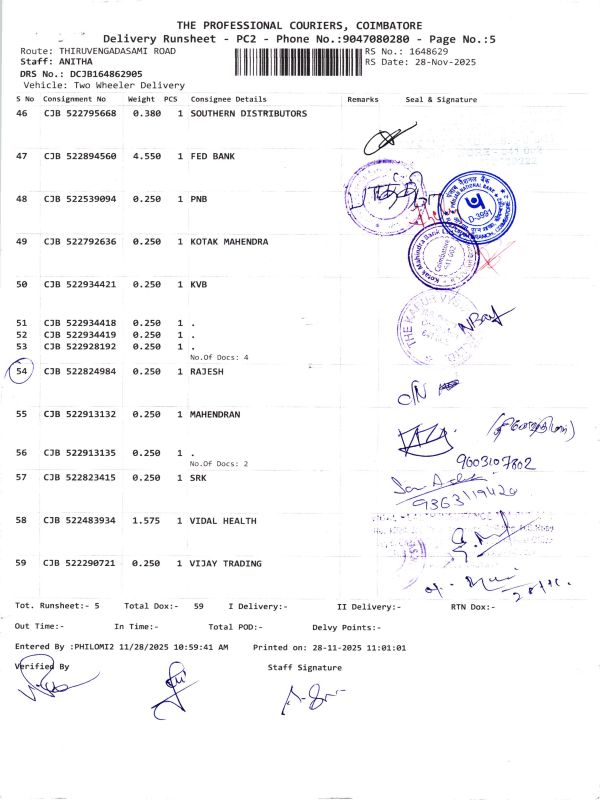 THE PROFESSIONAL COURIERS, COIMBATORE
Delivery Runsheet - PC2 - Phone No.:9047080280 - Page No.:5
Route: THIRUVENGADASAMI ROAD RS No.: 1648629
Staff: ANITHA RS Date: 28-Nov-2025
DRS No.: DCJB164862905
Vehicle: Two Wheeler Delivery
S No Consignment No Weight PCS Consignee Details Remarks Seal & Signature
46 CJB 522795668 0.380 1 SOUTHERN DISTRIBUTORS
47 CJB 522894560 4.550 1 FED BANK
48 CJB 522539094 0.250 1 PNB
D-3991
49 CJB 522792636 0.250 1 KOTAK MAHENDRA
Kotak Mahindra Bank
Coimbatore
641 002
50 CJB 522934421 0.250 1 KVB
51 CJB 522934418 0.250 1 .
52 CJB 522934419 0.250 1 .
53 CJB 522928192 0.250 1 .
No.Of Docs: 4
54 CJB 522824984 0.250 1 RAJESH
C/N
55 CJB 522913132 0.250 1 MAHENDRAN
56 CJB 522913135 0.250 1 .
9003107802
No.Of Docs: 2
57 CJB 522823415 0.250 1 SRK
9363119420
58 CJB 522483934 1.575 1 VIDAL HEALTH
59 CJB 522290721 0.250 1 VIJAY TRADING
Tot. Runsheet:- 5 Total Dox:- 59 I Delivery:- II Delivery:- RTN Dox:-
Out Time:- In Time:- Total POD:- Delvy Points:-
Entered By :PHILOMI2 11/28/2025 10:59:41 AM Printed on: 28-11-2025 11:01:01
Verified By Staff Signature